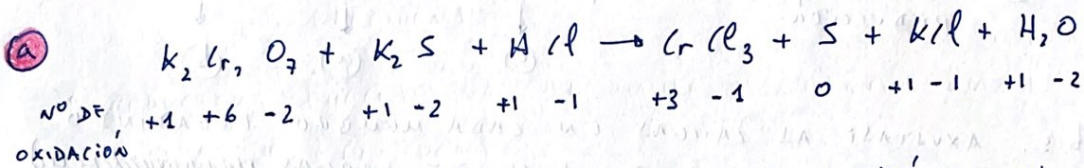 (a) K₂ Cr₂ O₇ + K₂ S + H Cl → Cr Cl₃ + S + KCl + H₂O
Nº DE OXIDACIÓN +1 +6 -2 +1 -2 +1 -1 +3 -1 0 +1 -1 +1 -2